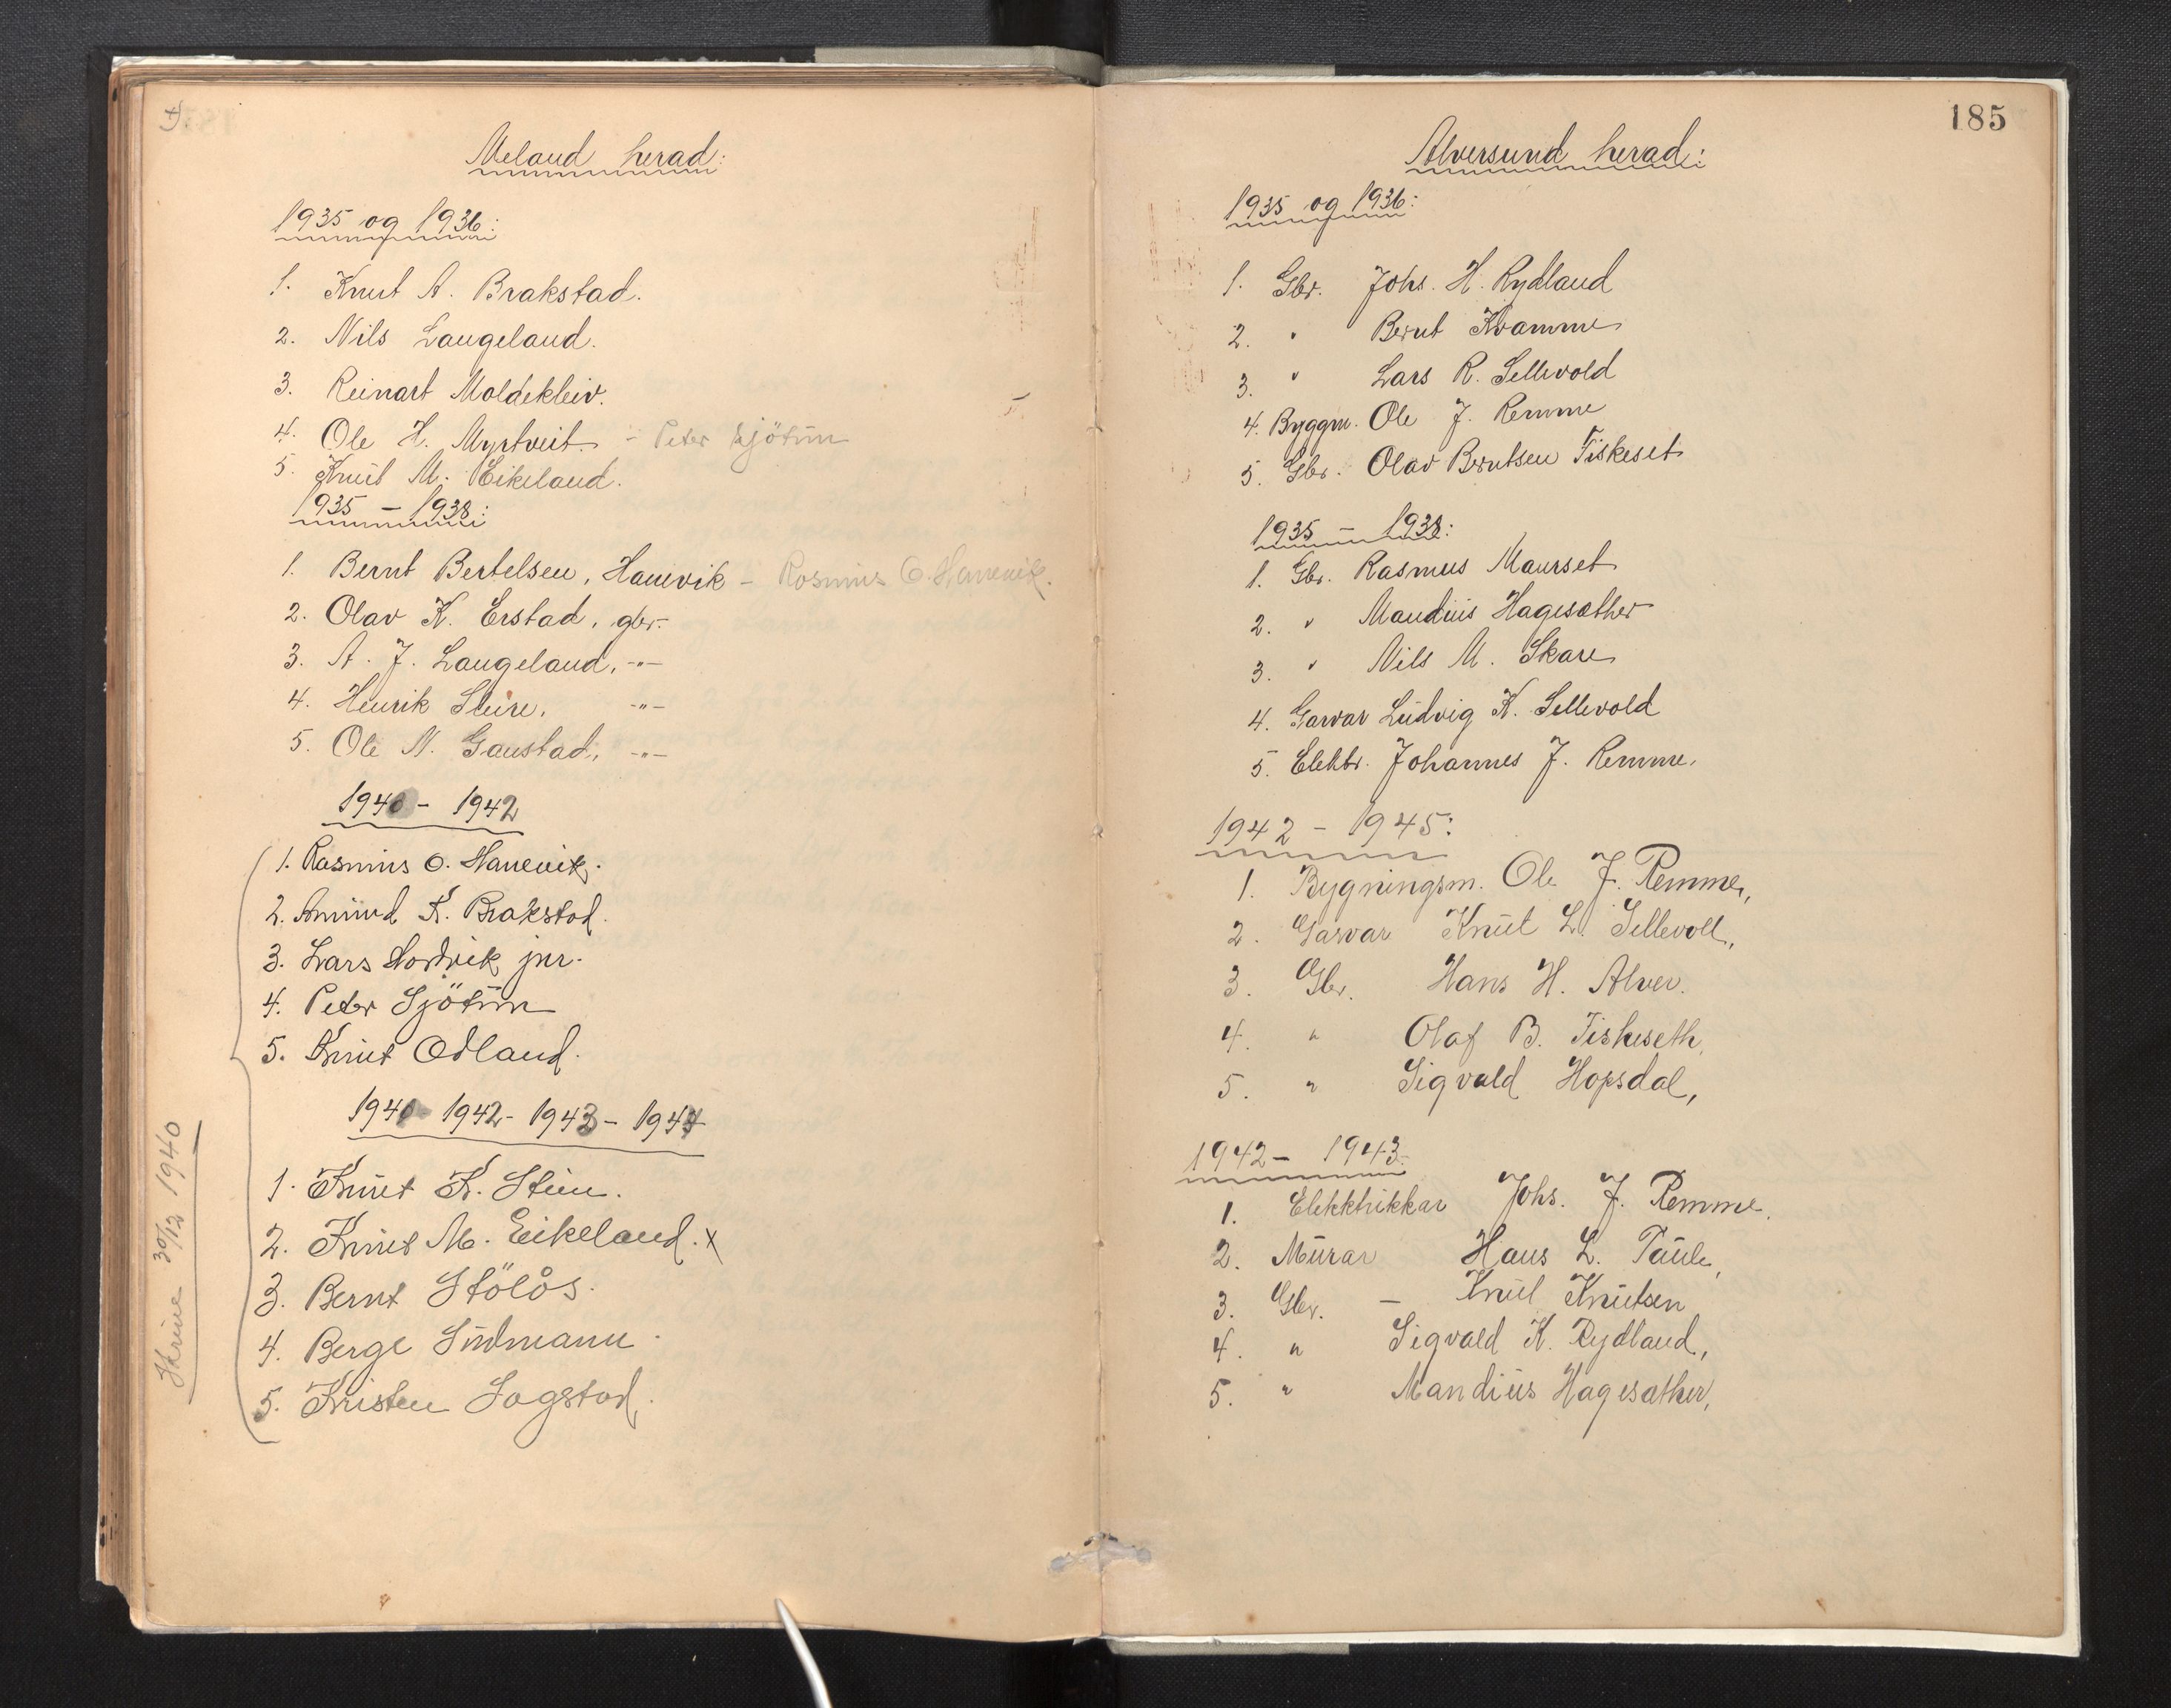 Meland herad:
1935 og 1936:
1. Knut A. Brakstad.
2. Nils Langeland.
3. Reinart Moldekleiv.
4. Ole H. Myrtveit. - Peter Sjötun
5. Knut M. Eikeland.
1935 - 1938:
1. Bernt Bertelsen, Hanevik - Rasmus O. Hanevik.
2. Olav K. Erstad, gbr.
3. A. J. Langeland, -"-
4. Henrik Sleire, -"-
5. Ole N. Gaustad, -"-
1940 - 1942
1. Rasmus O. Hanevik.
2. Amund K. Brakstad.
3. Lars Hordvik jnr.
4. Peter Sjötun
5. Knut Odland.
1940 1942 - 1943 - 1944
1. Knut K. Steen.
2. Knut M. Eikeland. x
3. Bernt Stölås.
4. Berge Sudmann.
5. Kristen Sagstad.
30/12 1940
185
Alversund herad:
1935 og 1936:
1. Gbr. Johs. H. Rydland
2. " Bernt Kvamme
3. " Lars R. Sellevold
4. Byggm. Ole J. Remme
5. Gbr. Olav Berntsen Fiskeset
1935 - 1938:
1. Gbr. Rasmus Maurset
2. " Mandius Hagesæther
3. " Nils M. Skare
4. Garvar Ludvig K. Sellevold
5. Elektr. Johannes J. Remme.
1942 - 1945:
1. Bygningsm. Ole J. Remme,
2. Garvar Knut L. Sellevoll,
3. Gbr. Hans H. Alver.
4. " Olaf B. Fiskeseth,
5. " Sigvald Hopsdal,
1942 - 1943.
1. Elektrikkar Johs. J. Remme.
2. Murar Hans L. Taule,
3. Gbr. - Knut Knutsen
4. " Sigvald K. Rydland,
5. " Mandius Hagesæther,